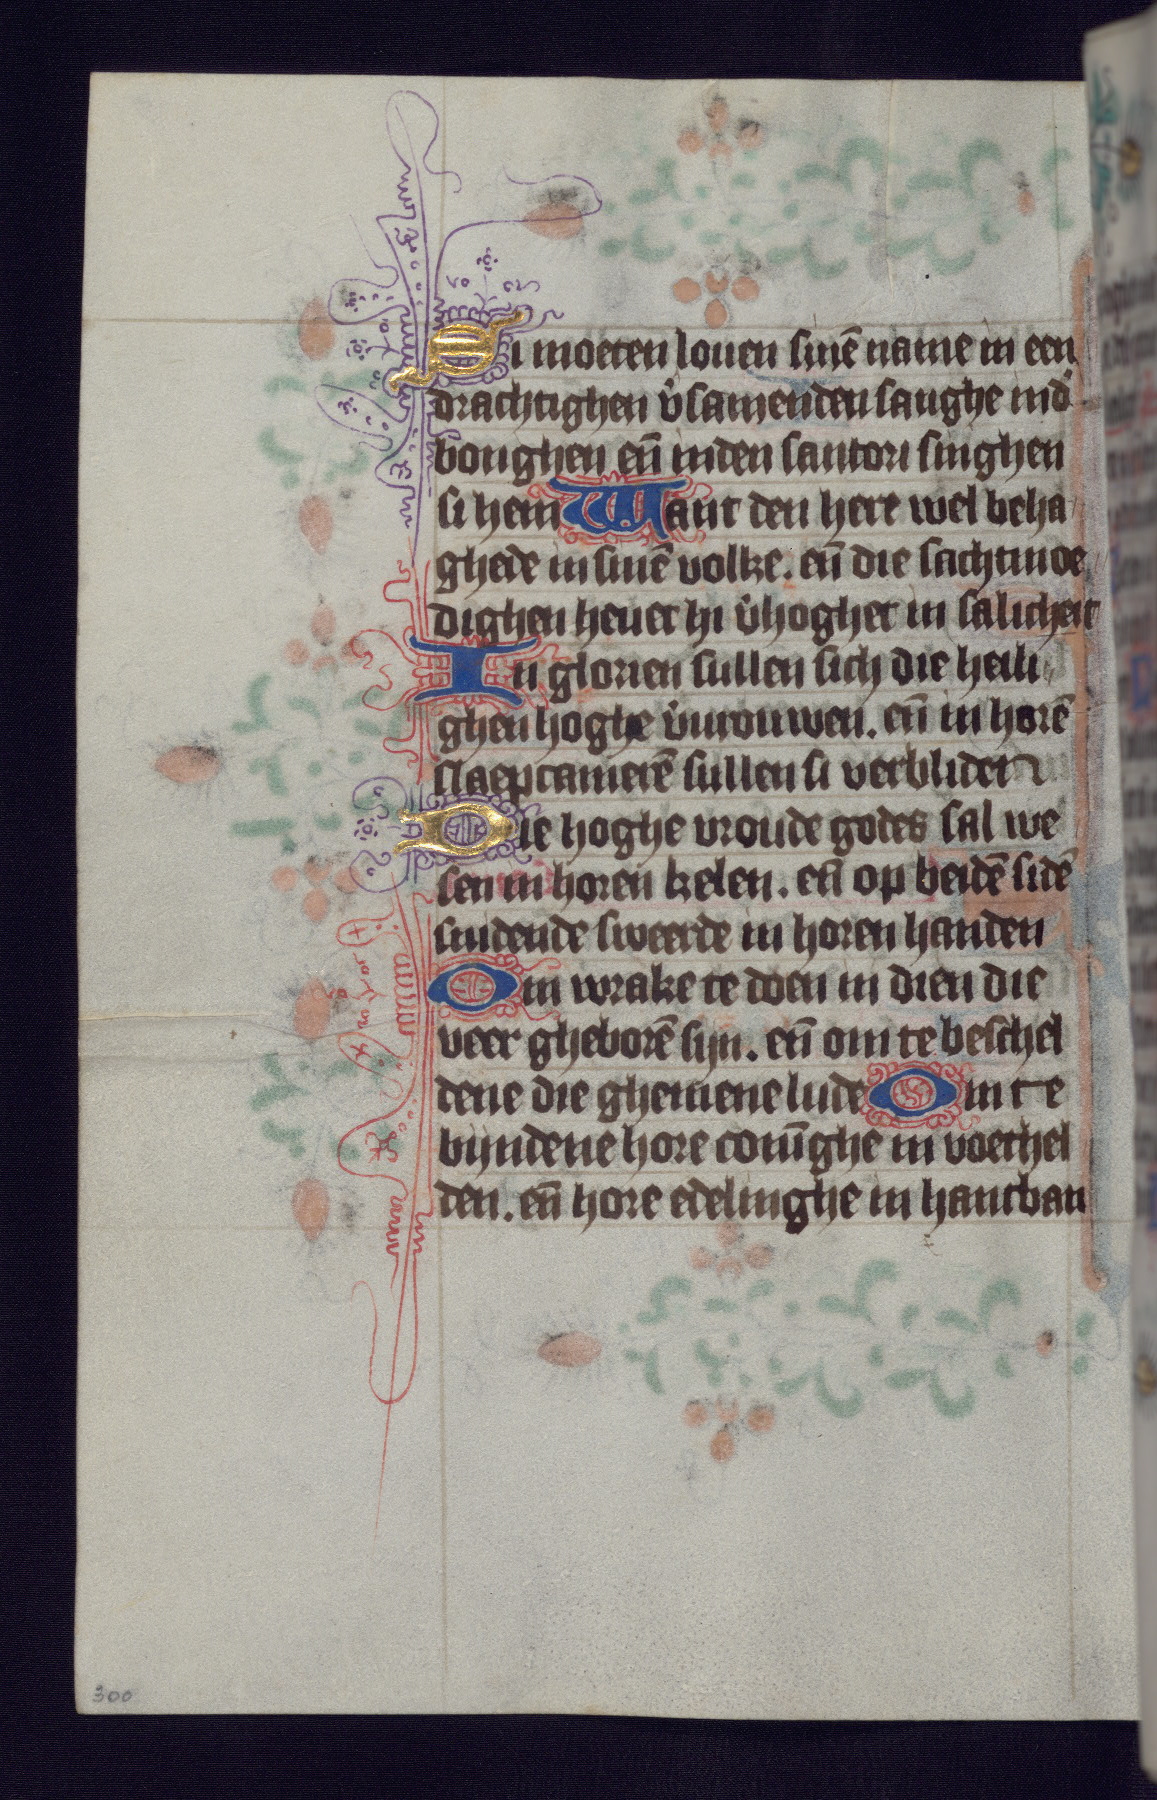 Si moeten louen sinē name in een
drachtighen v̉samenden sanghe ind̉
bonghen en̄ inden santori singhen
si hem Want den here wel beha
ghede in sinē volke. en̄ die sachtmoe
dighen heuet hi v̉hoghet in salicheit
In glorien sullen sich die heili
ghen hoghe v̉urouwen. en̄ in horē
slaepcamerē sullen si verblidet
Die hoghe vroude godes sal we
sen in horen kelen. en̄ op beidē sidē
snidende sweerde in horen handen
Om wrake te doen in dien die
veer gheborē sijn. en̄ om te beschel
dene die ghemene lude Om te
bijndene hore conīghe in voethel
den. en̄ hore edelinghe in hantban
300